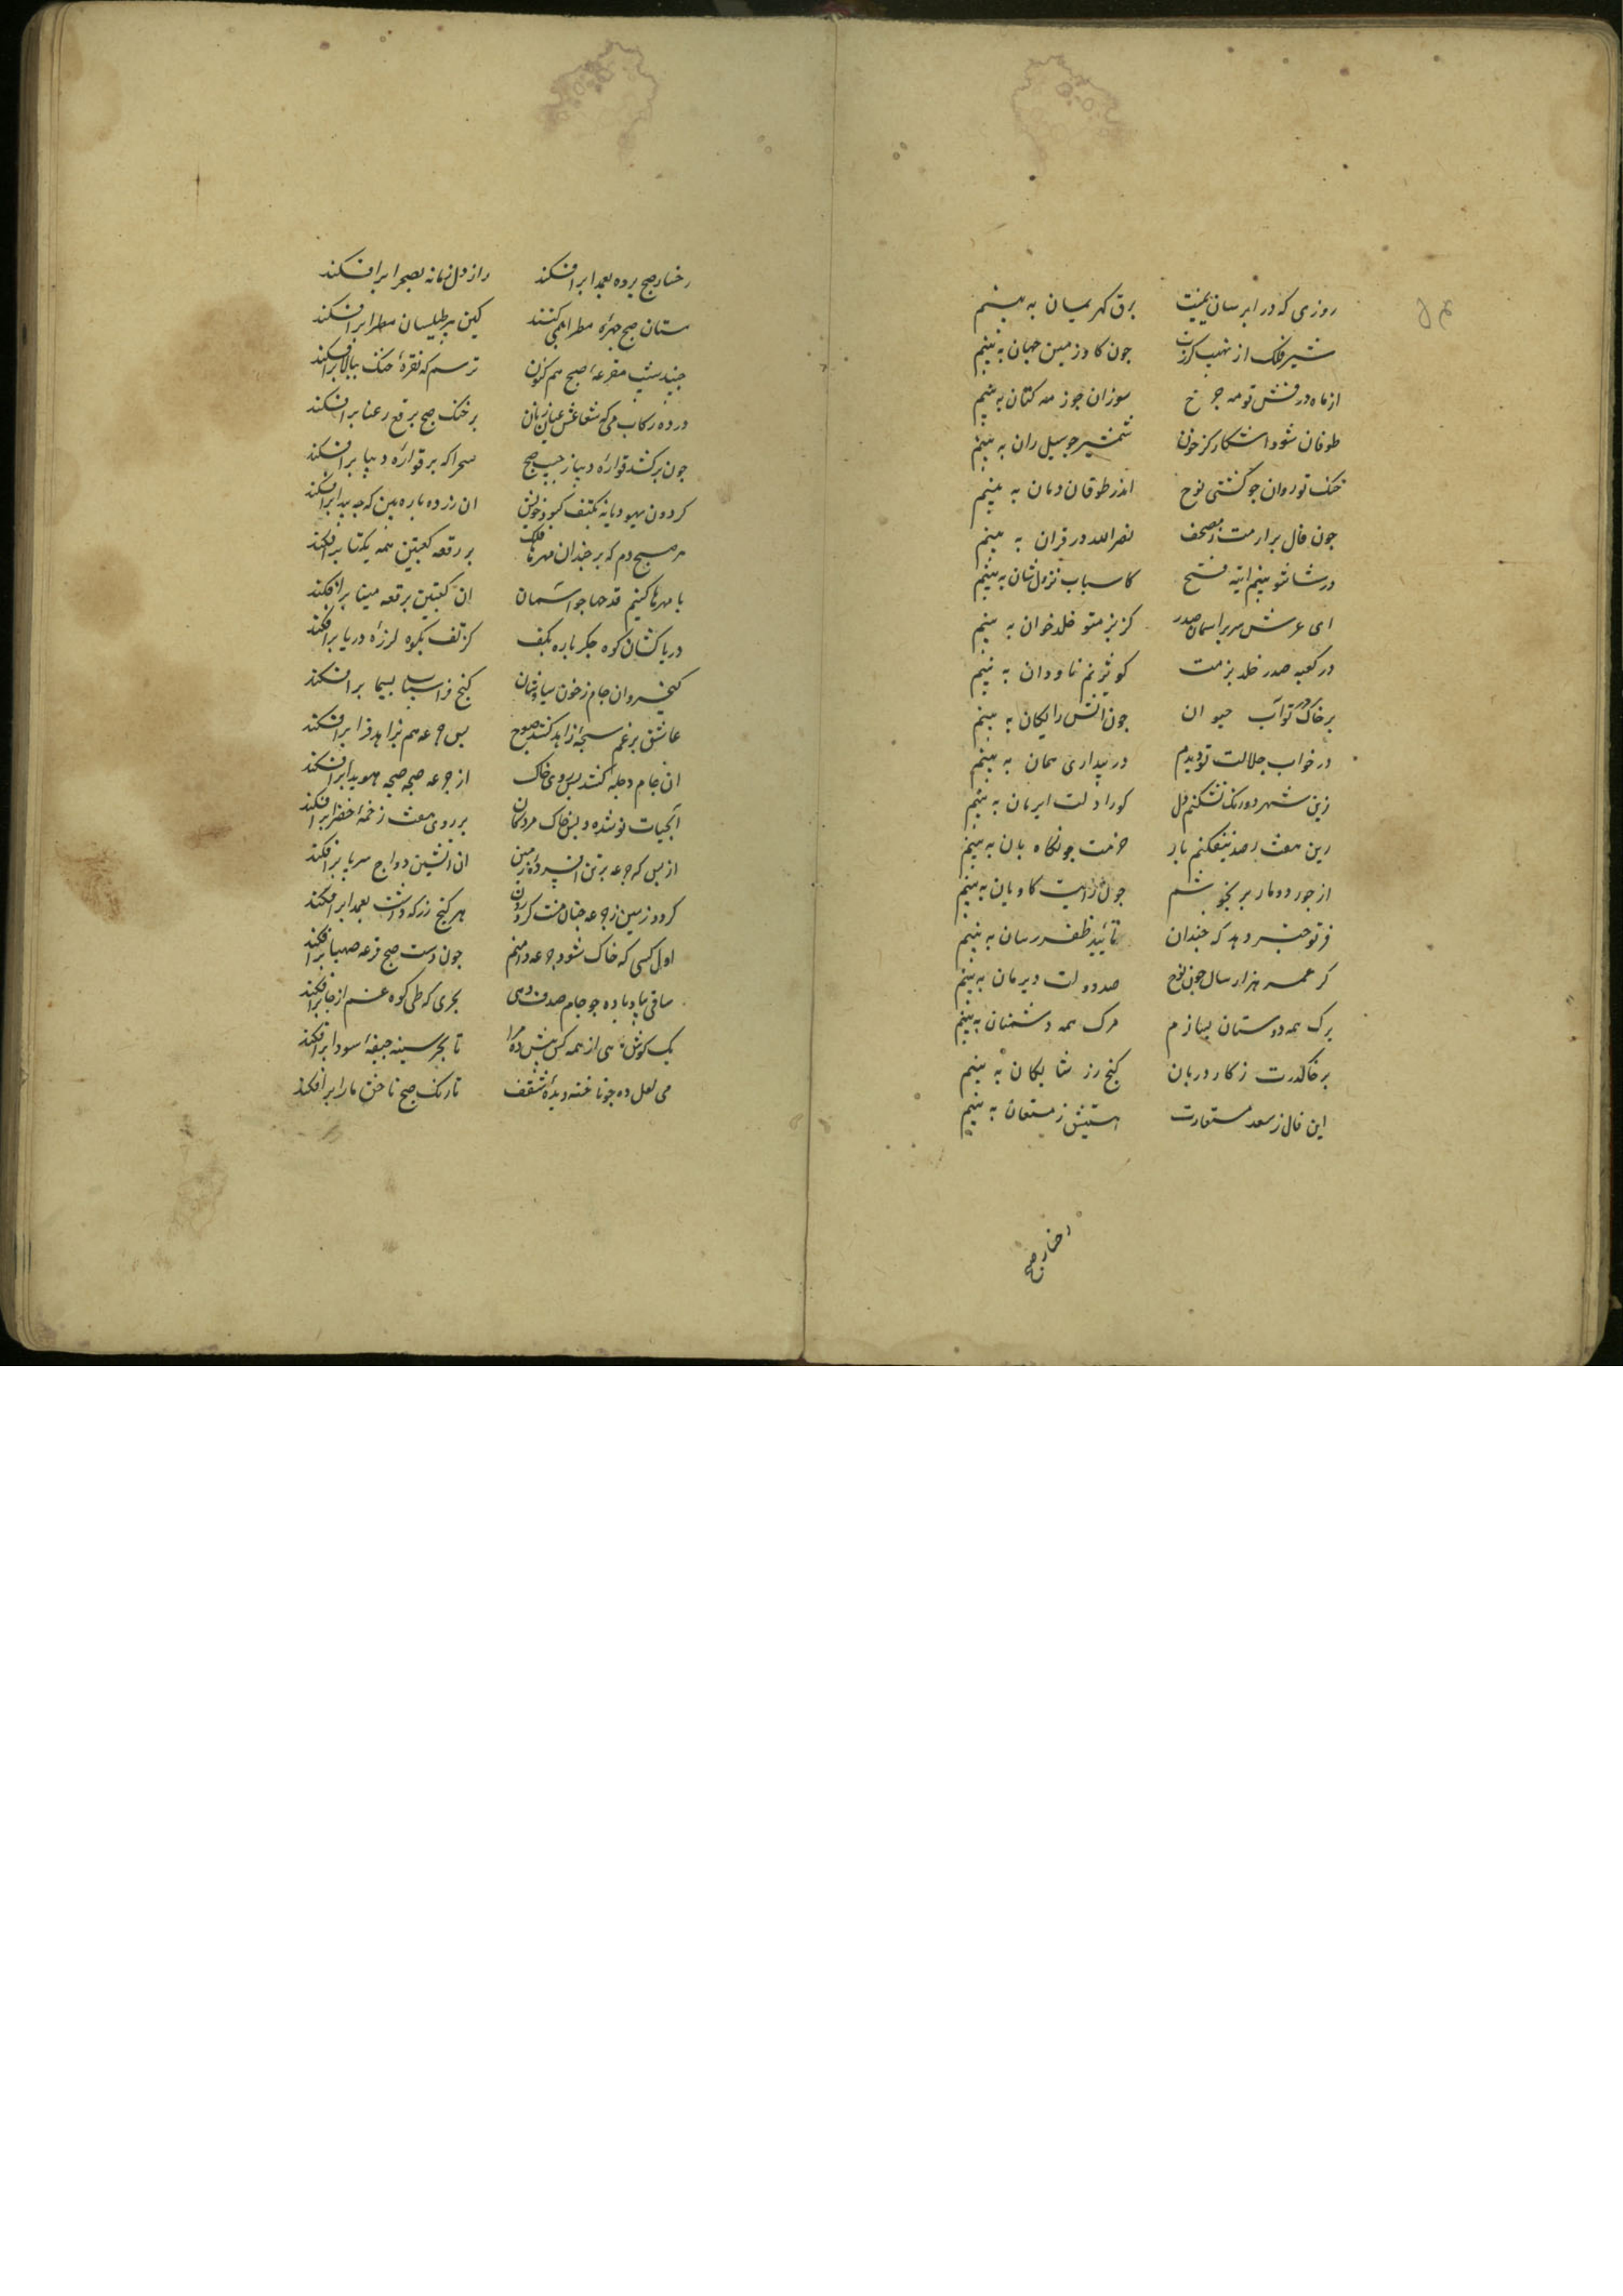 روزی که در ابرسان یمینت برق گهر یمیان به بینم
شیر فلک از نهیب گرزت چون گاو زمین جهان به بینم
از ماه درفش تو مه چرخ سوزان چو ز مه کتان به بینم
طوفان شود اشکار کز خون شمشیر چو سیل ران به بینم
خنک تو روان چو کشتی نوح اندر طوفان دمان به بینم
چون فال برارمت ز مصحف نصرالله در قران به بینم
در شانتو بینم ایته فتح کاسباب نزول شان به بینم
ای عرش سریر اسمان صدر کز بزمتو خلد خوان به بینم
در کعبه صدر خلد بزمت کوثر نم ناودان به بینم
بر خاک در تو آب حیوان چون اتش رایکان به بینم
در خواب جلالت تو دیدم در بیداری همان به بینم
زین شهر دو رنک نشکنم دل کو را دلت ایرمان به بینم
زین هفت رصد نیفکنم بار
از جور دو مار بر نجوشم چون رایت کاویان به بینم
فر تو خبر دهد که چندان تائید ظفر رسان به بینم
کر عمر هزار سال چون نوح صد دولت دیرمان به بینم
برک همه دوستان بسازم مرک همه دشمنان به بینم
بر خاکدرت ز کار دربان کنج زر شایکان به بینم
این فال ز سعد مستعارت
رخسار صبح
رخسار صبح پرده بعمدا برافکند راز دل زمانه بصحرا برافکند
مستان صبح چهره مطرا بمی کنند کین پیر طیلسان مطرا برافکند
جنبد شیب مقرعه صبح هم کنون ترسم که نقره خنک ببالا برافکند
در ده رکاب می که شعاعش عنان زنان بر خنک صبح برقع رعنا برافکند
چون برکشد قواره دیبا ز جیب صبح سحرا که بر قواره دیبا برافکند
کردون یهودیانه بکتف کبود خویش ان زرد پاره بین که چه پیدا برافکند
هر صبح دم که برچندان مهرها فلک بر رقعه کعبتین همه یکتا برافکند
با مهرها کنیم قدحها چو اسمان ان کعبتین بر رقعه مینا برافکند
دریاکشان کوه جکر باده بکف کز تف بکوه لرزه دریا برافکند
کیخسروان جام ز خون سیاوشان کنج فراسیاب بسیما برافکند
عاشق برغم سبحه زاهد کند صبوح بس جرعه هم بزاهد قرا برافکند
ان جام دجله دجله کشد پس بروی خاک از جرعه صبحه صبحه هویدا برافکند
آبحیات نوشد و پس خاک مردکان بر روی هفت زخمه خضرا برافکند
از بس که جرعه بر تن افسرده زمین ان اتشین دواج سراپا برافکند
کردد زمین ز جرعه چنان مست کز درون هر کنج زر که داشت بعمدا برافکند
اول کسی که خاک شود جرعه را منم چون دست صبح قرعه صهبا برافکند
ساقی بیاد باده چو جام صدف دهی بحری که طی کوه غم از جا برافکند
یک کوش ماهی از همه کس بیش ده مرا تا بحر سینه جیفه سودا برافکند
می لعل ده چو ناخنه دیده شفق تا رنک صبح ناخن ما را برافکند